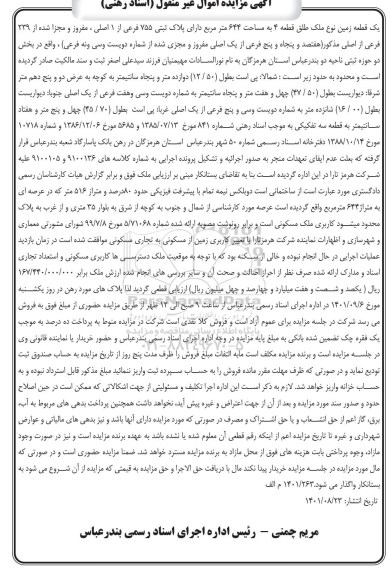 آگهی مزایده اموال غیر منقول (اسناد رهنی)
یک قطعه زمین نوع ملک طلق قطعه ۴ به مساحت ۶۴۴ متر مربع دارای پلاک ثبتی ۷۵۵ فرعی از ۱ اصلی ، مفروز و مجزا شده از ۲۳۹
فرعی از اصلی مذکور(هفتصد و پنجاه و پنج فرعی از یک اصلی مفروز و مجزی شده از شماره دویست وسی ونه فرعی) ، واقع در بخش
دو حوزه ثبتی ناحیه دو بندرعباس استان هرمزگان به نام نورالسادات مهیمنیان فرزند سیدعلی اصغر ثبت و سند مالکیت صادر گردیده
است و محدود به حدود زیر است : شمالا: پی است بطول (۵۰ / ۱۲) دوازده متر و پنجاه سانتیمتر به کوچه به عرض دو و پنج دهم متر
شرقا: دیواریست بطول (۵۰ / ۴۷) چهل و هفت متر و پنجاه سانتیمتر به شماره دویست وسی ونه وهفت فرعی از یک اصلی جنوبا: دیواریست
بطول (۰۰ / ۱۶) شانزده متر به شماره دویست وسی و پنج فرعی از یک اصلی غربا: پی است بطول (۷۰ / ۴۵) چهل و پنج متر و هفتاد
سانتیمتر به قطعه سه تفکیکی به موجب اسناد رهنی شماره ۸۴۱ مورخ ۱۳۸۵/۰۷/۱۳ و ۵۶۸۵ مورخ ۱۳۸۶/۱۲/۰۶ و شماره ۱۰۷۱۸
مورخ ۱۳۸۸/۱۰/۱۴ دفترخانه اسناد رسمی شماره ۵۰ شهر بندرعباس استان هرمزگان در رهن بانک پاسارگاد شعبه بندرعباس قرار
گرفته که بعلت عدم ایفای تعهدات منجر به صدور اجرائیه و تشکیل پرونده اجرایی به شماره کلاسه های ۹۱۰۰۱۳۶ و ۹۱۰۰۱۰۵ علیه
شرکت هرمز تارا در این اداره گردیده است بنا به تقاضای بستانکار مبنی بر ارزیابی ملک فوق و برابر گزارش هیات کارشناسان رسمی
دادگستری مورد عبارت است از ساختمانی است دوبلکس نیمه تمام با پیشرفت فیزیکی حدود ۸۰درصد و متراژ ۵۱۶ متر که در عرصه ای
به متراژ۶۴۴ مترمربع واقع گردیده است عرصه مورد کارشناسی از شمال و جنوب به کوچه از شرق به بلوار ۳۵ متری و از غرب به پلاک
محدود میشود کاربری ملک مسکونی است و برابر رونوشت مصوبه ارائه شده شماره ۵/۷۱۰۶۸ مورخ ۹۹/۷/۸ شورای مشورتی معماری
و شهرسازی و اظهارات نماینده شرکت هرمزتارا با تغییر کاربری زمین از مسکونی به تجاری مسکونی موافقت شده است در زمان بازدید
عملیات اجرایی در حال انجام نبوده و خالی از سکنه بود که با توجه به موقعیت ملک دسترسی ها کاربری مسکونی و استعداد تجاری
اسناد و مدارک ارائه شده صرف نظر از احراز اصالت و صحت آن و سایر بررسی های انجام شده ارزش ملک برابر ۱۶۷/۴۴۰/۰۰۰/۰۰۰
ریال ( یکصد و شصت و هفت میلیارد و چهارصد و چهل میلیون ریال) ارزیابی قطعی گردید لذا پلاک های مورد رهن در روز یکشنبه
مورخ ۱۴۰۱/۰۹/۶ در اداره اجرای اسناد رسمی بندرعباس از ساعت ۹ صبح الی ۱۲ ظهر از طریق مزایده حضوری از مبلغ فوق به فروش
می رسد شرکت در جلسه مزایده برای عموم آزاد است و فروش کلا نقدی است شرکت در مزایده منوط به پرداخت ده درصد به موجب
یک فقره چک تضمین شده بانکی به مبلغ پایه مزایده در وجه اداره اجرای اسناد رسمی بندرعباس و حضور خریدار یا نماینده قانونی وی
در جلسه مزایده است و برنده مزایده مکلف است مابه التفات مبلغ فروش را ظرف مدت پنج روز از تاریخ مزایده به حساب صندوق ثبت
تودیع نماید و در صورتی که ظرف مهلت مقرر مانده فروش را به حساب سپرده ثبت واریز ننمائید مبلغ مذکور قابل استرداد نبوده و به
حساب خزانه واریز خواهد شد. لازم به ذکر است این اداره اجرا تکلیف و مسئولیتی از جهت اشکالاتی که ممکن است در حین اصلاح
حدود و صدور سند مورد مزایده و بعد از آن از جهت اعتراض و غیره پیش آید، نخواهد داشت همچنین پرداخت بدهی های مربوط به آب
برق، گاز اعم از حق انشعاب و یا حق اشتراک و مصرف در صورتی که مورد مزایده دارای آنها باشد و نیز بدهی های مالیاتی و عوارض
شهرداری و غیره تا تاریخ مزایده اعم از اینکه رقم قطعی آن معلوم شده یا نشده باشد به عهده برنده مزایده است و نیز در صورت وجود
مازاد، وجوه پرداختی بابت هزینه های فوق از محل مازاد به برنده مزایده مسترد خواهد شد. ضمنا مزایده حضوری است و در صورتی که
مال مورد مزایده در جلسه مزایده خریدار پیدا نکند مال با دریافت حق الاجرا و حق مزایده به قیمتی که مزایده از آن شروع می شود به
بستانکار واگذار می شود.۱۴۰۱/۲۶۳ م الف
تاریخ انتشار: ۱۴۰۱/۰۸/۲۳
مریم چمنی – رئیس اداره اجرای اسناد رسمی بندرعباس